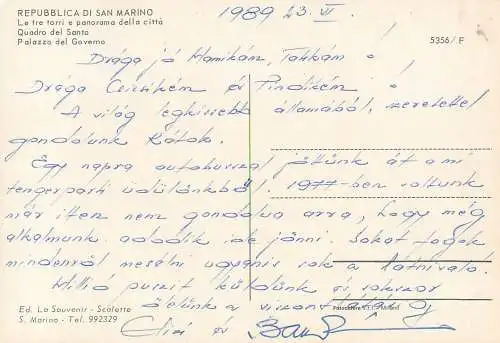 REPUBBLICA DI SAN MARINO
Le tre torri e panorama della città
Quadro del Santo
Palazzo del Governo
1989 23. VI.
5356/F
Drága jó Mamikám, Tatikám!
Drága Csicsikém és Pindikém!
A világ legkisebb államából, szeretettel
gondolunk Rátok.
Egy napra autobusszal jöttünk át a mi
tengerparti üdülőnkből. 1977-ben voltunk
már itten nem gondolva arra, hogy még
alkalmunk adódik ide jönni. Sokat fogok
mindenről mesélni ugyanis sok a látnivaló.
Millió puszit küldünk és sokszor
ölelünk a viszontlátásig
Ed. La Souvenir - Scalette
S. Marino - Tel. 992329
és